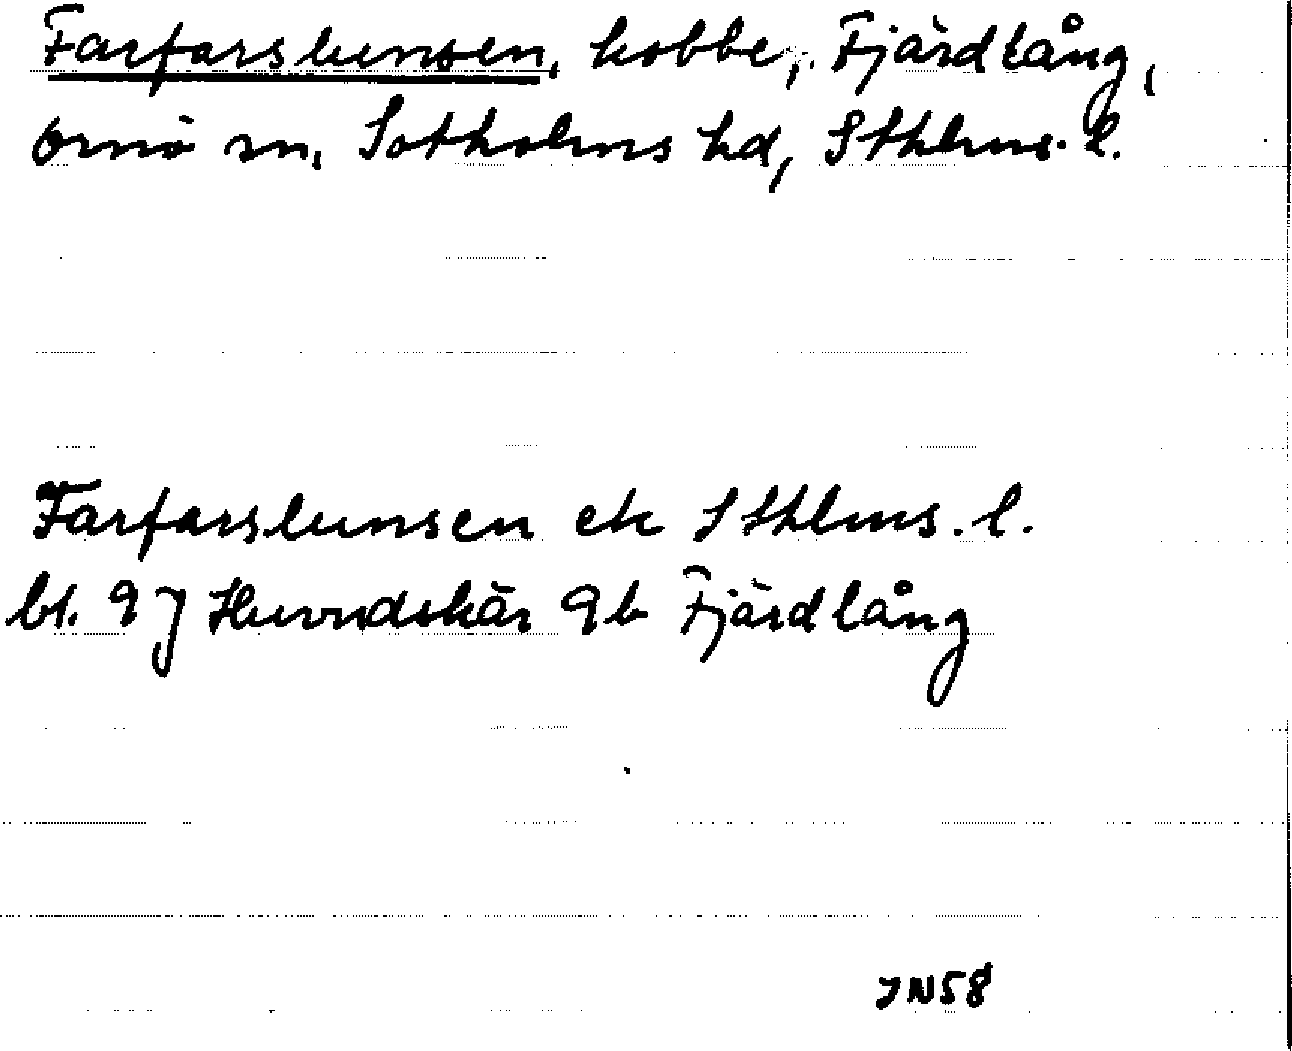 Farfarslunsen, kobbe, Fjärdlång,
Ornö sn, Sotholms hd, Sthlms. l.
Farfarslunsen ek Sthlms. l.
bl. 9 J Huvudskär 9b Fjärdlång
JN58